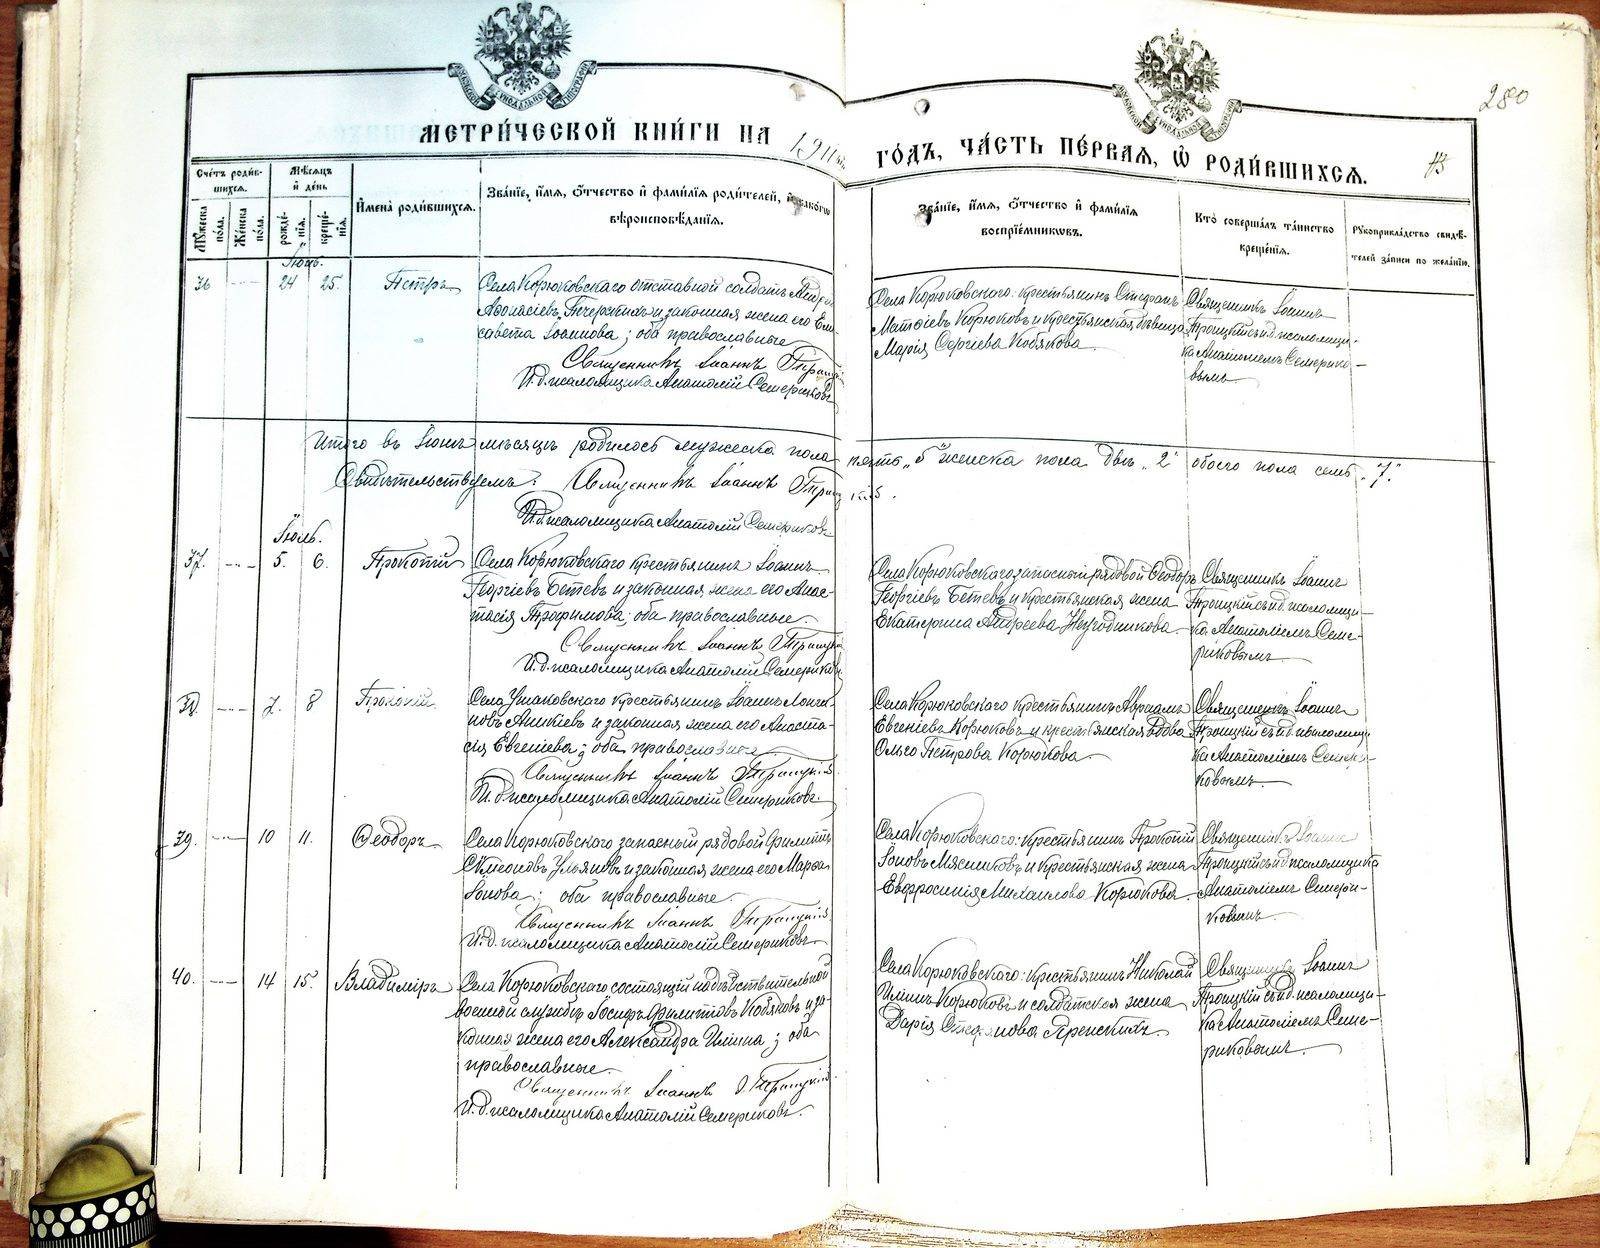 280
МЕТРИ́ЧЕСКОЙ КНИ́ГИ НА 1911 ГО́ДЪ, ЧА́СТЬ ПЕ́РВАЯ, Ѡ РОДИ́ВШИХСЯ.
Сче́тъ роди́вшихся.
Мꙋ́жеска по́ла.
Же́нска по́ла.
Мѣ́сяцъ и҆ де́нь
рожде́нїя.
креще́нїя.
И҆мена̀ роди́вшихся.
Зва́нїе, и҆́мя, ѻ҆́тчество и҆ фами́лїя роди́телей, и҆ како́гѡ вѣроисповѣ́данїя.
Зва́нїе, и҆́мя, ѻ҆́тчество и҆ фами́лїя воспрїе́мниковъ.
Кто̀ соверша́лъ та́инство креще́нїя.
Рꙋкоприкла́дство свидѣ́телей за́писи по жела́нїю.
36 24 25. Петръ
Села Корюковскаго отставной солдатъ
Аѳонасіевъ Печерскихъ и законная жена его Ели-
савета Іоаннова; оба православные
Священникъ Іоаннъ Троицкій
И.д. псаломщика Анатолій Семериковъ
Села Корюковскаго: крестьянинъ Стефанъ
Матѳіевъ Корюковъ и крестьянская дѣвица
Марія Сергіева Кобякова.
Священникъ Іоаннъ
Троицкій съ и.д. псаломщи-
ка Анатоліемъ Семерико-
вымъ
Итого въ Іюнѣ мѣсяцѣ родилось мужеска пола пять „5“ женска пола двѣ „2“ обоего пола семь „7“.
Свидѣтельствуемъ: Священникъ Іоаннъ Троицкій.
И.д. псаломщика Анатолій Семериковъ
Іюль.
37. 5. 6. Прокопій
Села Корюковскаго крестьянинъ Іоаннъ
Георгіевъ Бетевъ и законная жена его Анас-
тасія Трофимова; оба православные.
Священникъ Іоаннъ Троицкій
И.д. псаломщика Анатолій Семериковъ
Села Корюковскаго запасный рядовой Ѳеодоръ
Георгіевъ Бетевъ и крестьянская жена
Екатерина Андреева
Священникъ Іоаннъ
Троицкій съ и.д. псаломщи-
ка Анатоліемъ Семе-
риковымъ
38. 7. 8 Прокопій
Села Ушаковскаго крестьянинъ Іоаннъ Логги-
новъ Аникіевъ и законная жена его Анаста-
сія Евгеніева; оба православные
Священникъ Іоаннъ Троицкій
И.д. псаломщика Анатолій Семериковъ
Села Корюковскаго крестьянинъ Авраамъ
Евгеніевъ Корюковъ и крестьянская вдова
Ольга Петрова Корюкова.
Священникъ Іоаннъ
Троицкій съ и.д. псаломщи-
ка Анатоліемъ Семери-
ковымъ
39. 10 11. Ѳеодоръ
Села Корюковскаго запасный рядовой Филиппъ
Симеоновъ Ульяновъ и законная жена его Марѳа
Іонова; оба православные.
Священникъ Іоаннъ Троицкій
И.д. псаломщика Анатолій Семериковъ
Села Корюковскаго: крестьянинъ Прокопій
Іоновъ Мясниковъ и крестьянская жена
Евфросинія Михаилова Корюкова.
Священникъ Іоаннъ
Троицкій съ и.д. псаломщика
Анатоліемъ Семери-
ковымъ
40. 14 15. Владиміръ
Села Корюковскаго состоящій на дѣйствительной
военной службѣ Іосифъ Филипповъ Кобяковъ и за-
конная жена его Александра Ильина; оба
православные.
Священникъ Іоаннъ Троицкій
И.д. псаломщика Анатолій Семериковъ.
Села Корюковскаго: крестьянинъ Николай
Ильинъ Корюковъ и солдатская жена
Дарія Стефанова Яренскихъ
Священникъ Іоаннъ
Троицкій съ и.д. псаломщи-
ка Анатоліемъ Семе-
риковымъ.